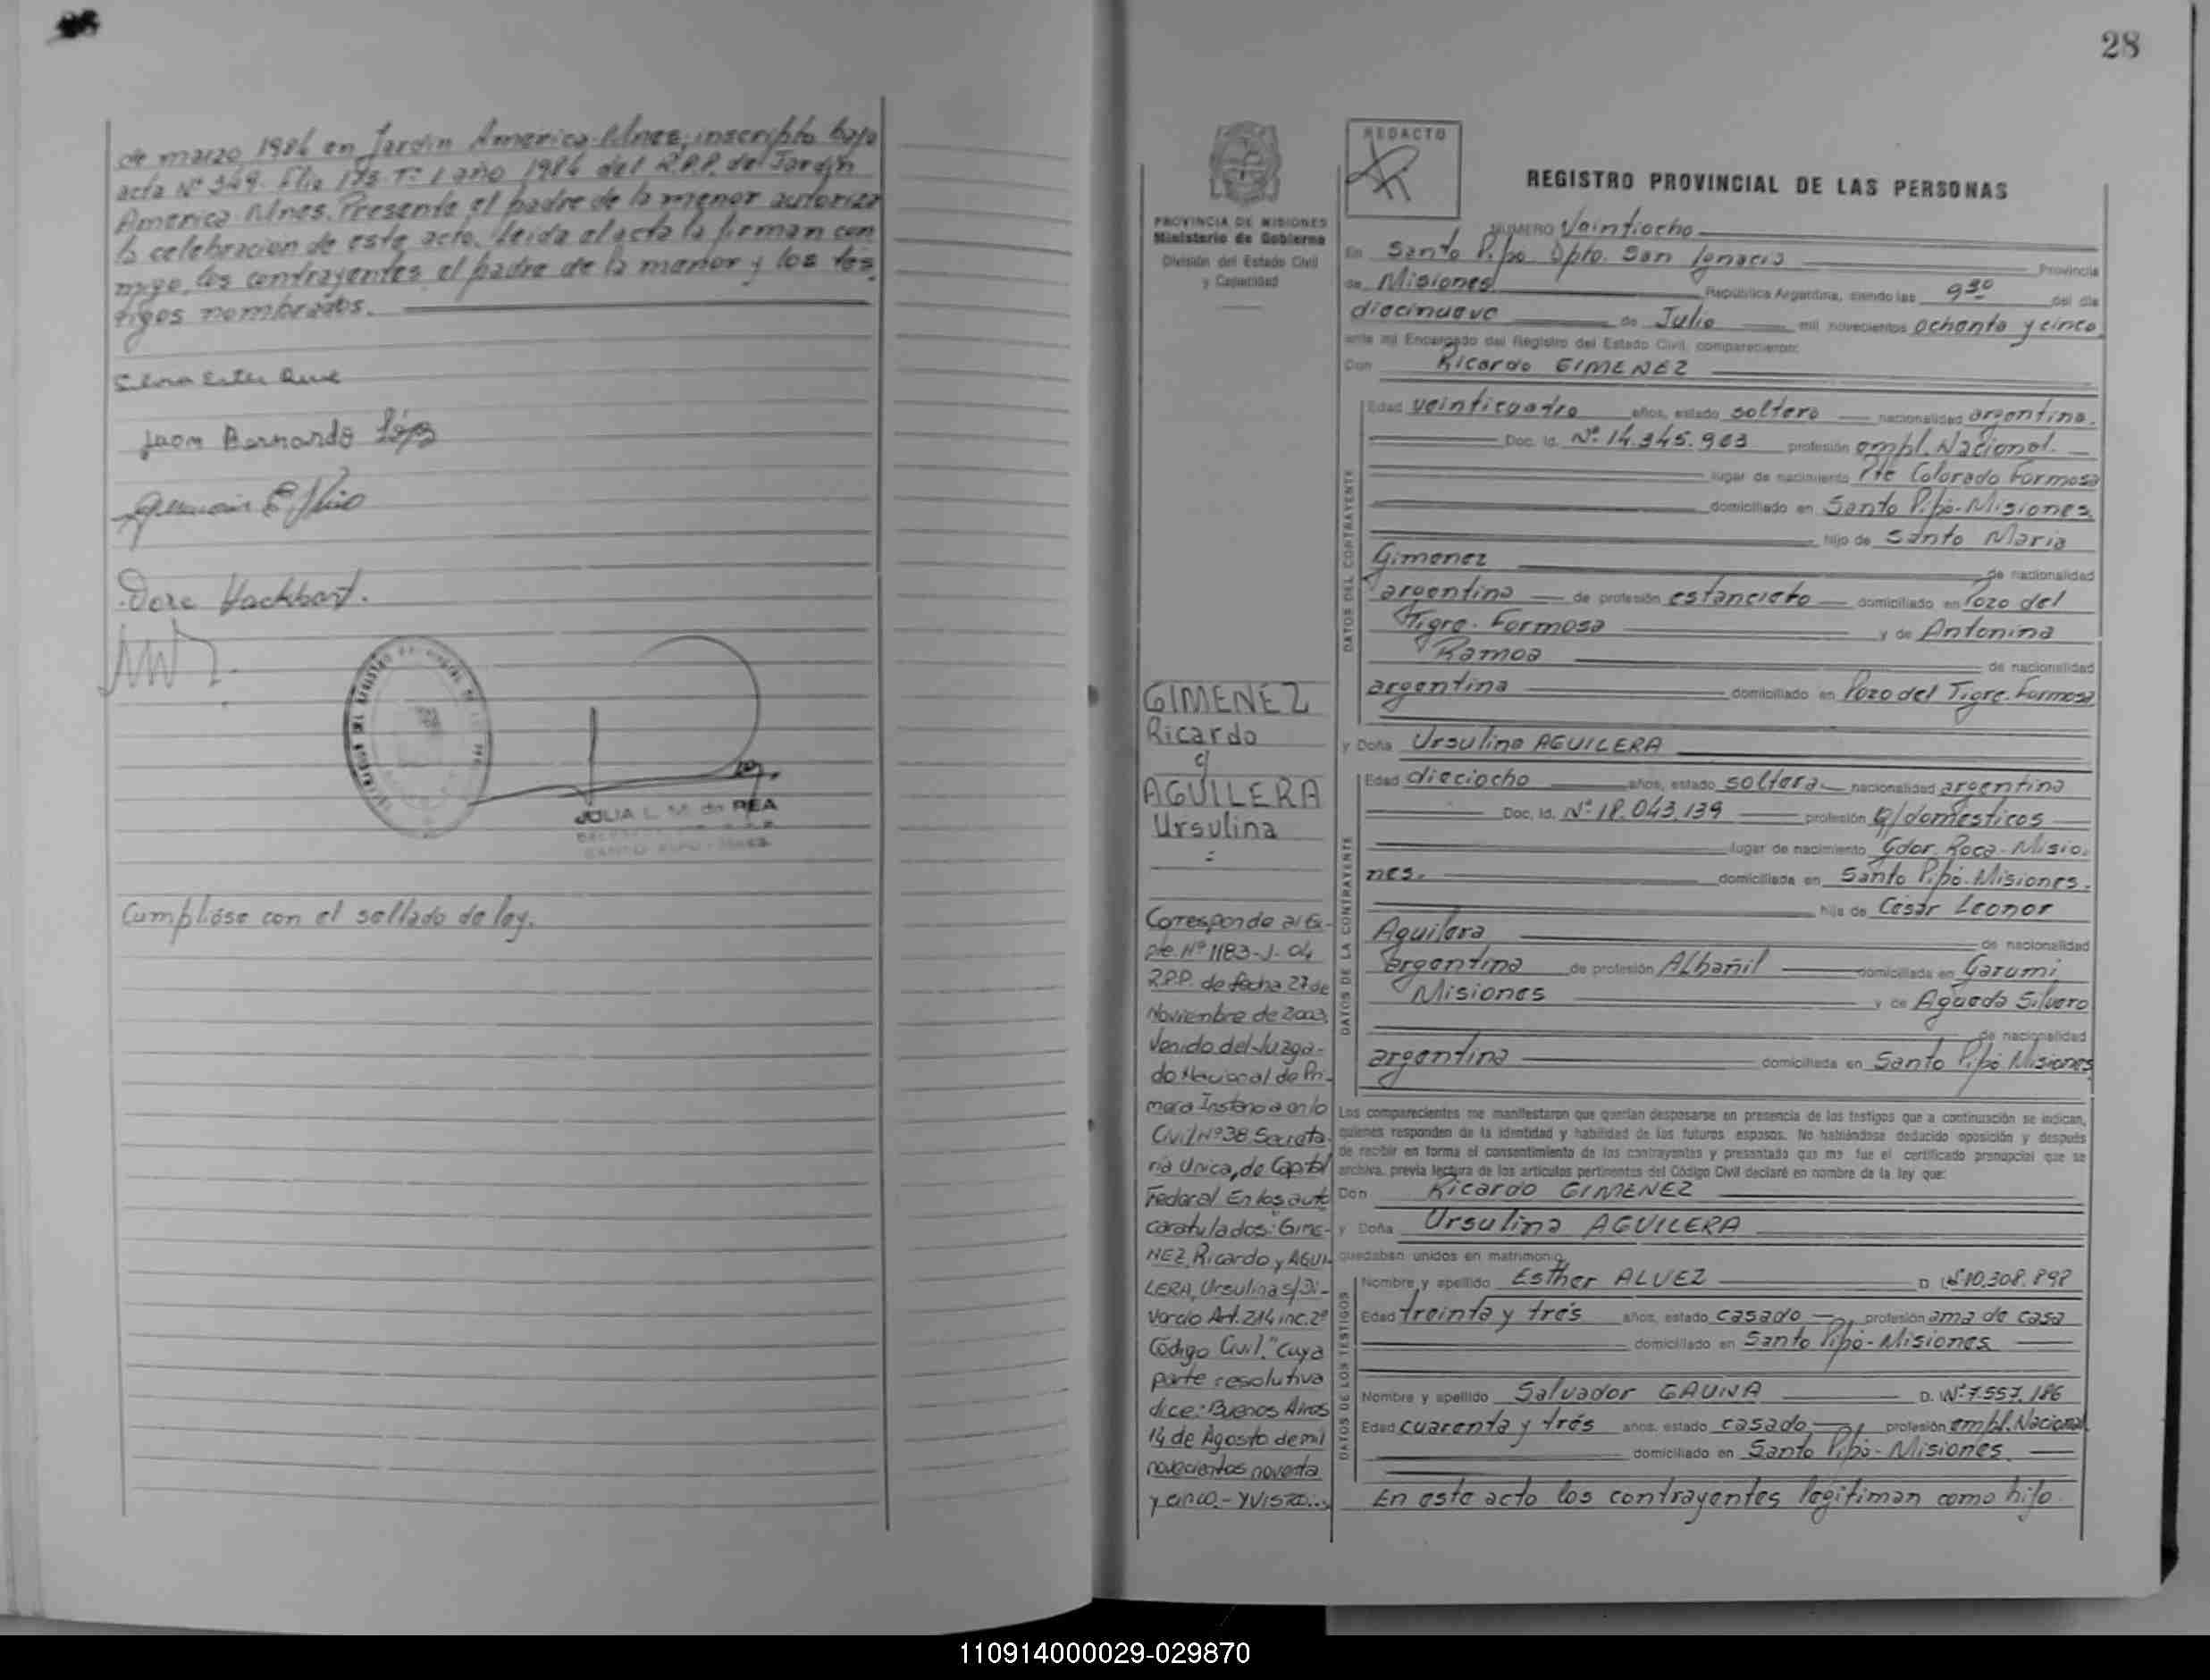 de marzo 1986 en Jardin America-Mnes, inscripto bajo
acta Nº 349. Flio 175 Tº 1 año 1986 del R.P.P. de Jardin
America Mnes. Presente el padre de la menor autoriza
la celebracion de este acto. Leida el acta la firman con
migo, los contrayentes el padre de la menor y los tes
tigos nombrados.
Juan Bernardo López
Dora Hackbart.
JULIA L. M. de REA
Cumplióse con el sellado de ley.
28
PROVINCIA DE MISIONES
Ministerio de Gobierno
División del Estado Civil
y Capacidad
GIMENEZ
Ricardo
y
AGUILERA
Ursulina
=
Corresponde al Ex-
pte. Nº 1183-J-04
R.P.P. de fecha 27 de
Noviembre de 2003,
Venido del Juzga-
do Nacional de Pri-
mera Instancia en lo
Civil Nº 38 Secreta-
ria Unica, de Capital
Federal En los auto
caratulados: Gime-
NEZ, Ricardo y AGUI-
LERA, Ursulina s/Di-
vorcio Art. 214 inc. 2º
Código Civil." Cuya
parte resolutiva
dice: Buenos Aires
14 de Agosto de mil
novecientos noventa
y cinco.- Y VISTO...
REDACTO
REGISTRO PROVINCIAL DE LAS PERSONAS
NUMERO Veintiocho
En Santo Pipo Dpto. San Ignacio Provincia
de Misiones República Argentina, siendo las 9 30 del día
diecinueve de Julio mil novecientos ochenta y cinco
ante mi Encargado del Registro del Estado Civil, comparecieron:
Don Ricardo GIMENEZ
DATOS DEL CONTRAYENTE
Edad veinticuatro años, estado soltero nacionalidad argentina.
Doc. Id. Nº 14.345.903 profesión empl. Nacional.
lugar de nacimiento Pte Colorado Formosa
domiciliado en Santo Pipó-Misiones
hijo de Santo Maria
Gimenez de nacionalidad
argentina de profesión estanciero domiciliado en Pozo del
Tigre. Formosa y de Antonina
Ramoa de nacionalidad
argentina domiciliado en Pozo del Tigre. Formosa
y Doña Ursulina AGUILERA
DATOS DE LA CONTRAYENTE
Edad dieciocho años, estado soltera nacionalidad argentina
Doc. Id. Nº 18.043.139 profesión Q/domesticos
lugar de nacimiento Gdor. Roca-Misio.
nes. domiciliada en Santo Pipó-Misiones.
hija de César Leonor
Aguilera de nacionalidad
argentina de profesión Albañil domiciliada en Garumi
Misiones y de Agueda Silvero
de nacionalidad
argentina domiciliada en Santo Pipó Misiones
Los comparecientes me manifestaron que querían desposarse en presencia de los testigos que a continuación se indican,
quienes responden de la identidad y habilidad de los futuros esposos. No habiéndose deducido oposición y después
de recibir en forma el consentimiento de los contrayentes y presentado que me fue el certificado prenupcial que se
archiva, previa lectura de los artículos pertinentes del Código Civil declaré en nombre de la ley que:
Don Ricardo GIMENEZ
y Doña Ursulina AGUILERA
quedaban unidos en matrimonio
DATOS DE LOS TESTIGOS
Nombre y apellido Esther ALVEZ D. Nº 10.308.898
Edad treinta y trés años, estado casado profesión ama de casa
domiciliado en Santo Pipó-Misiones
Nombre y apellido Salvador GAUNA D. Nº 7.557.186
Edad cuarenta y trés años, estado casado profesión empl. Nacional
domiciliado en Santo Pipó-Misiones.
En este acto los contrayentes legitiman como hijo
110914000029-029870